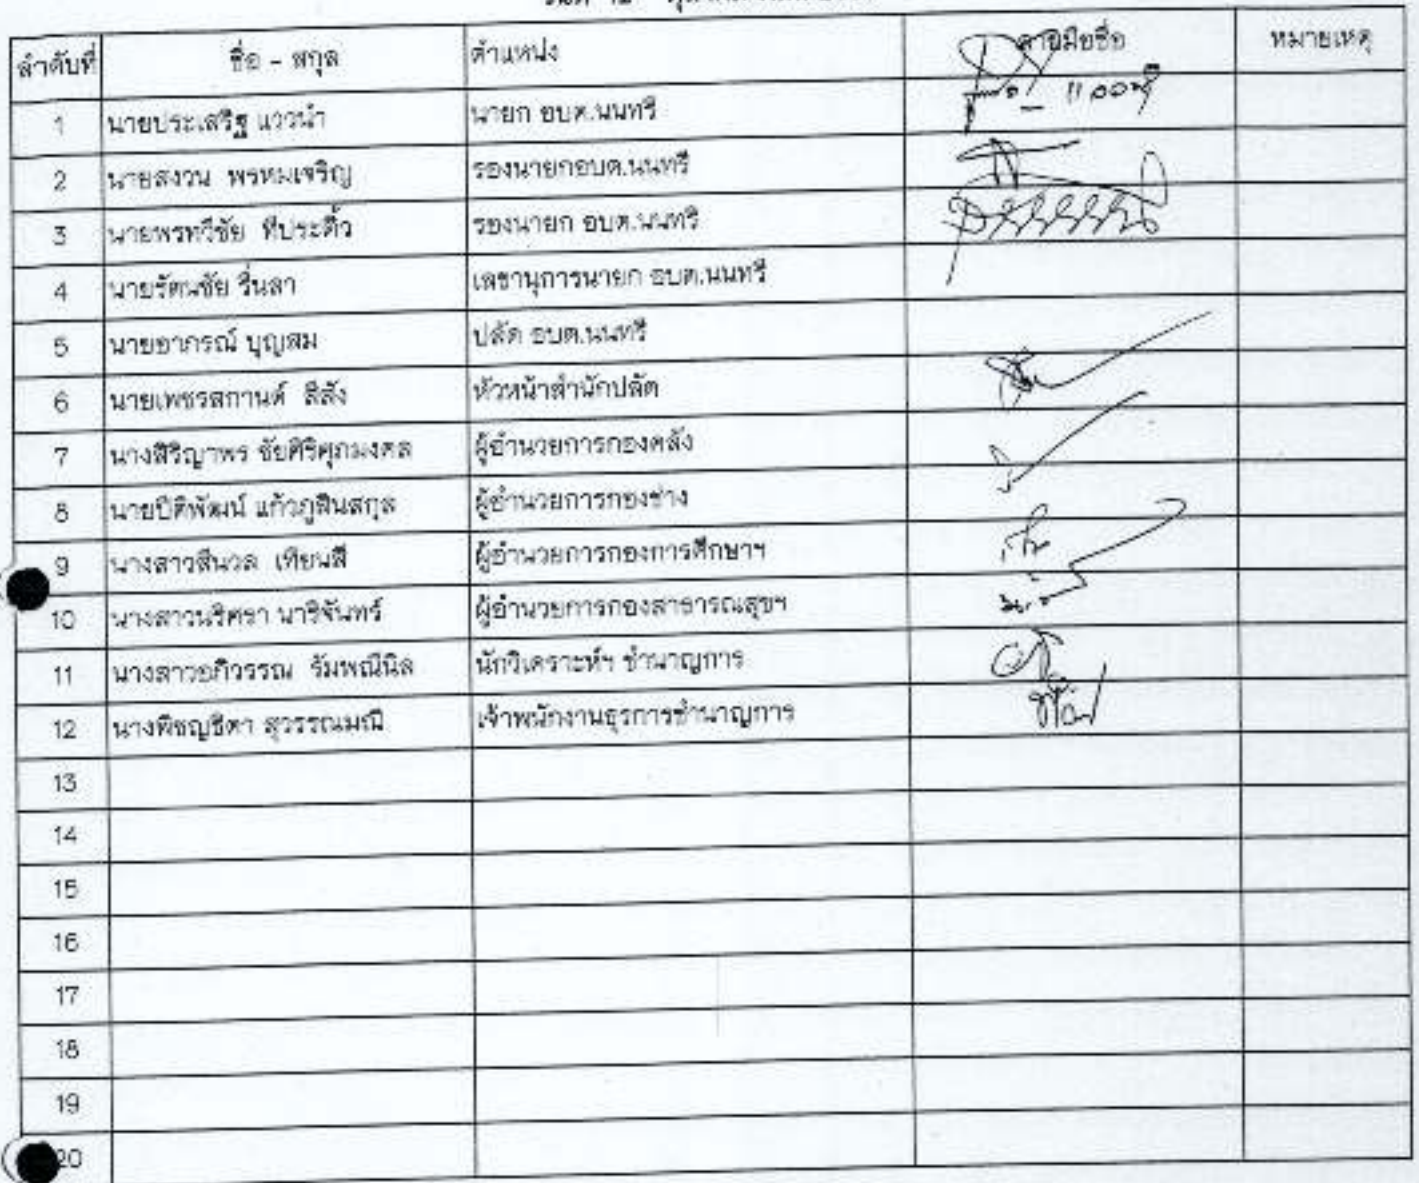 ลำดับที่ ชื่อ - สกุล ตำแหน่ง ลายมือชื่อ หมายเหตุ
1 นายประเสริฐ แววนำ นายก อบต.นนทรี
2 นายสงวน พรหมเจริญ รองนายกอบต.นนทรี
3 นายพรทวีชัย ทีประดิ้ว รองนายก อบต.นนทรี
4 นายรัตนชัย รื่นลา เลขานุการนายก อบต.นนทรี
5 นายอาภรณ์ บุญสม ปลัด อบต.นนทรี
6 นายเพชรสกานต์ สีสัง หัวหน้าสำนักปลัด
7 นางสิริญาพร ชัยศิริศุภมงคล ผู้อำนวยการกองคลัง
8 นายปิติพัฒน์ แก้วภูสินสกุล ผู้อำนวยการกองช่าง
9 นางสาวสีนวล เทียนสี ผู้อำนวยการกองการศึกษาฯ
10 นางสาวนริศรา นาริจันทร์ ผู้อำนวยการกองสาธารณสุขฯ
11 นางสาวอภิวรรณ รัมพณีนิล นักวิเคราะห์ฯ ชำนาญการ
12 นางพิชญธิดา สุวรรณมณี เจ้าพนักงานธุรการชำนาญการ
13
14
15
16
17
18
19
20